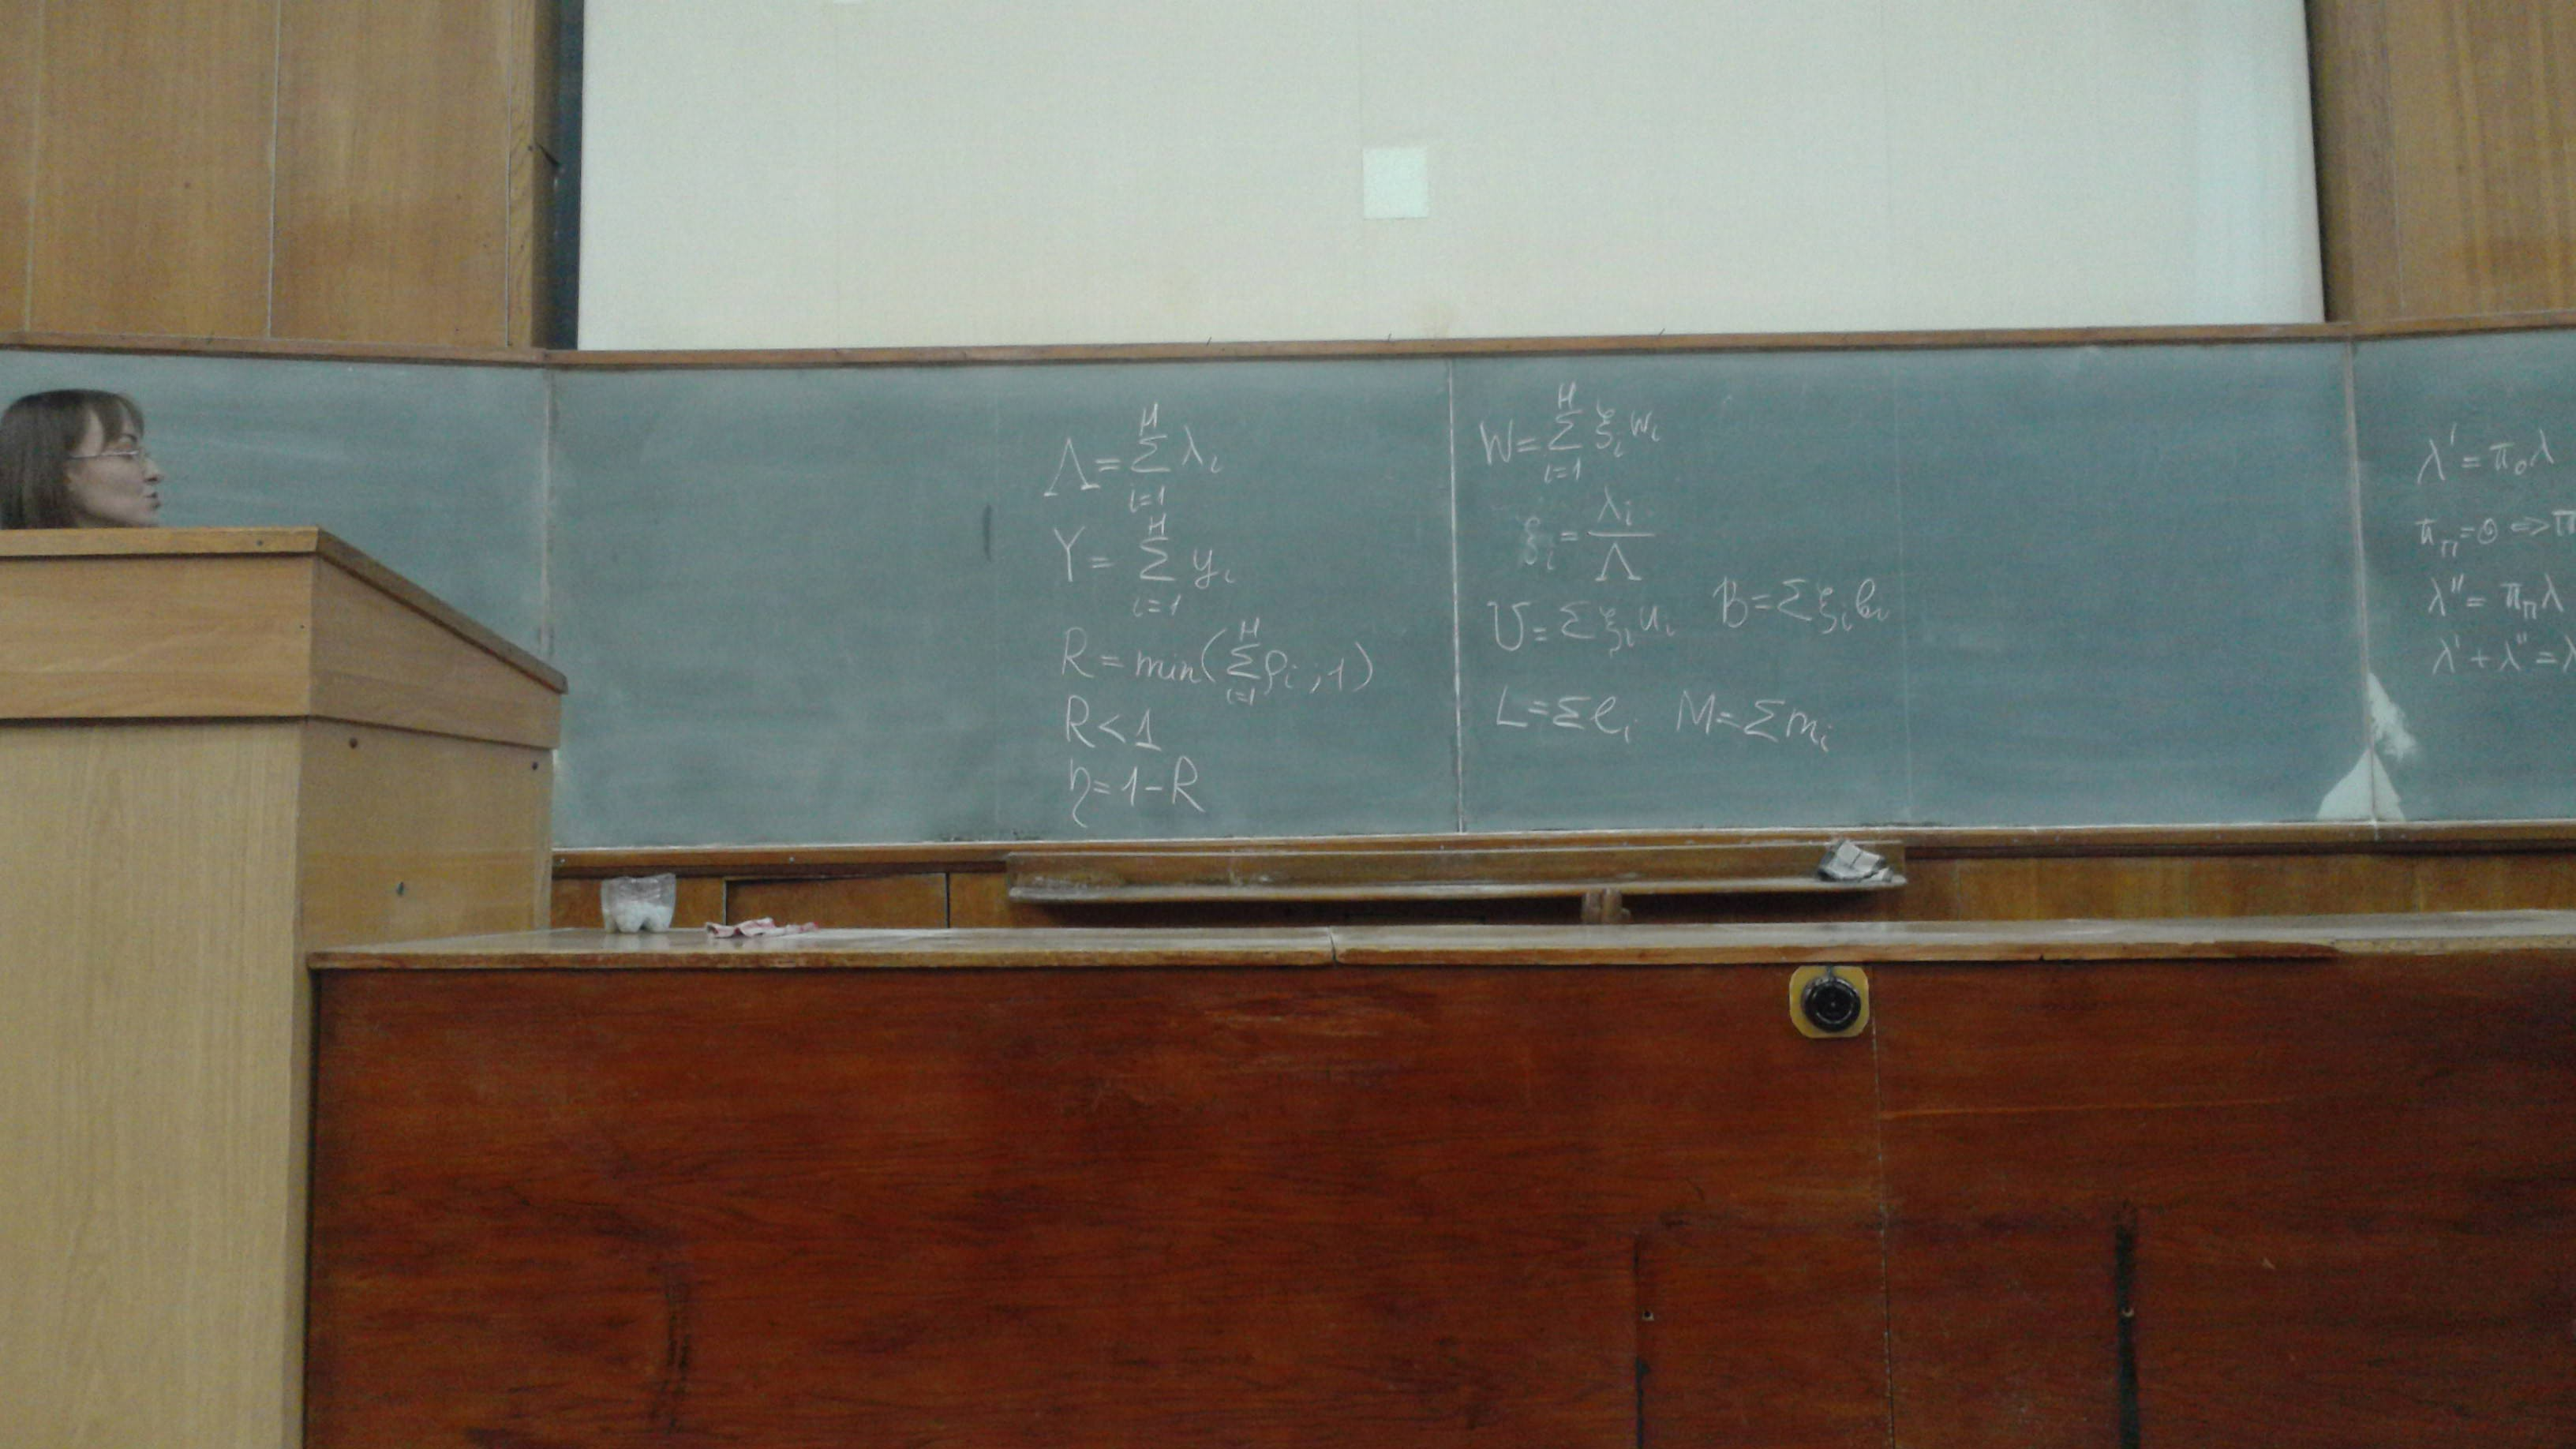 Λ = Σ_{i=1}^{H} λ_i
Y = Σ_{i=1}^{H} y_i
R = min(Σ_{i=1}^{H} ρ_i, 1)
R < 1
η = 1 - R
W = Σ_{i=1}^{H} ξ_i w_i
ξ_i = λ_i / Λ
U = Σ ξ_i u_i   B = Σ ξ_i b_i
L = Σ l_i   M = Σ m_i
λ' = π_0 λ
π_п = 0 <=> π
λ'' = π_п λ
λ' + λ'' = λ